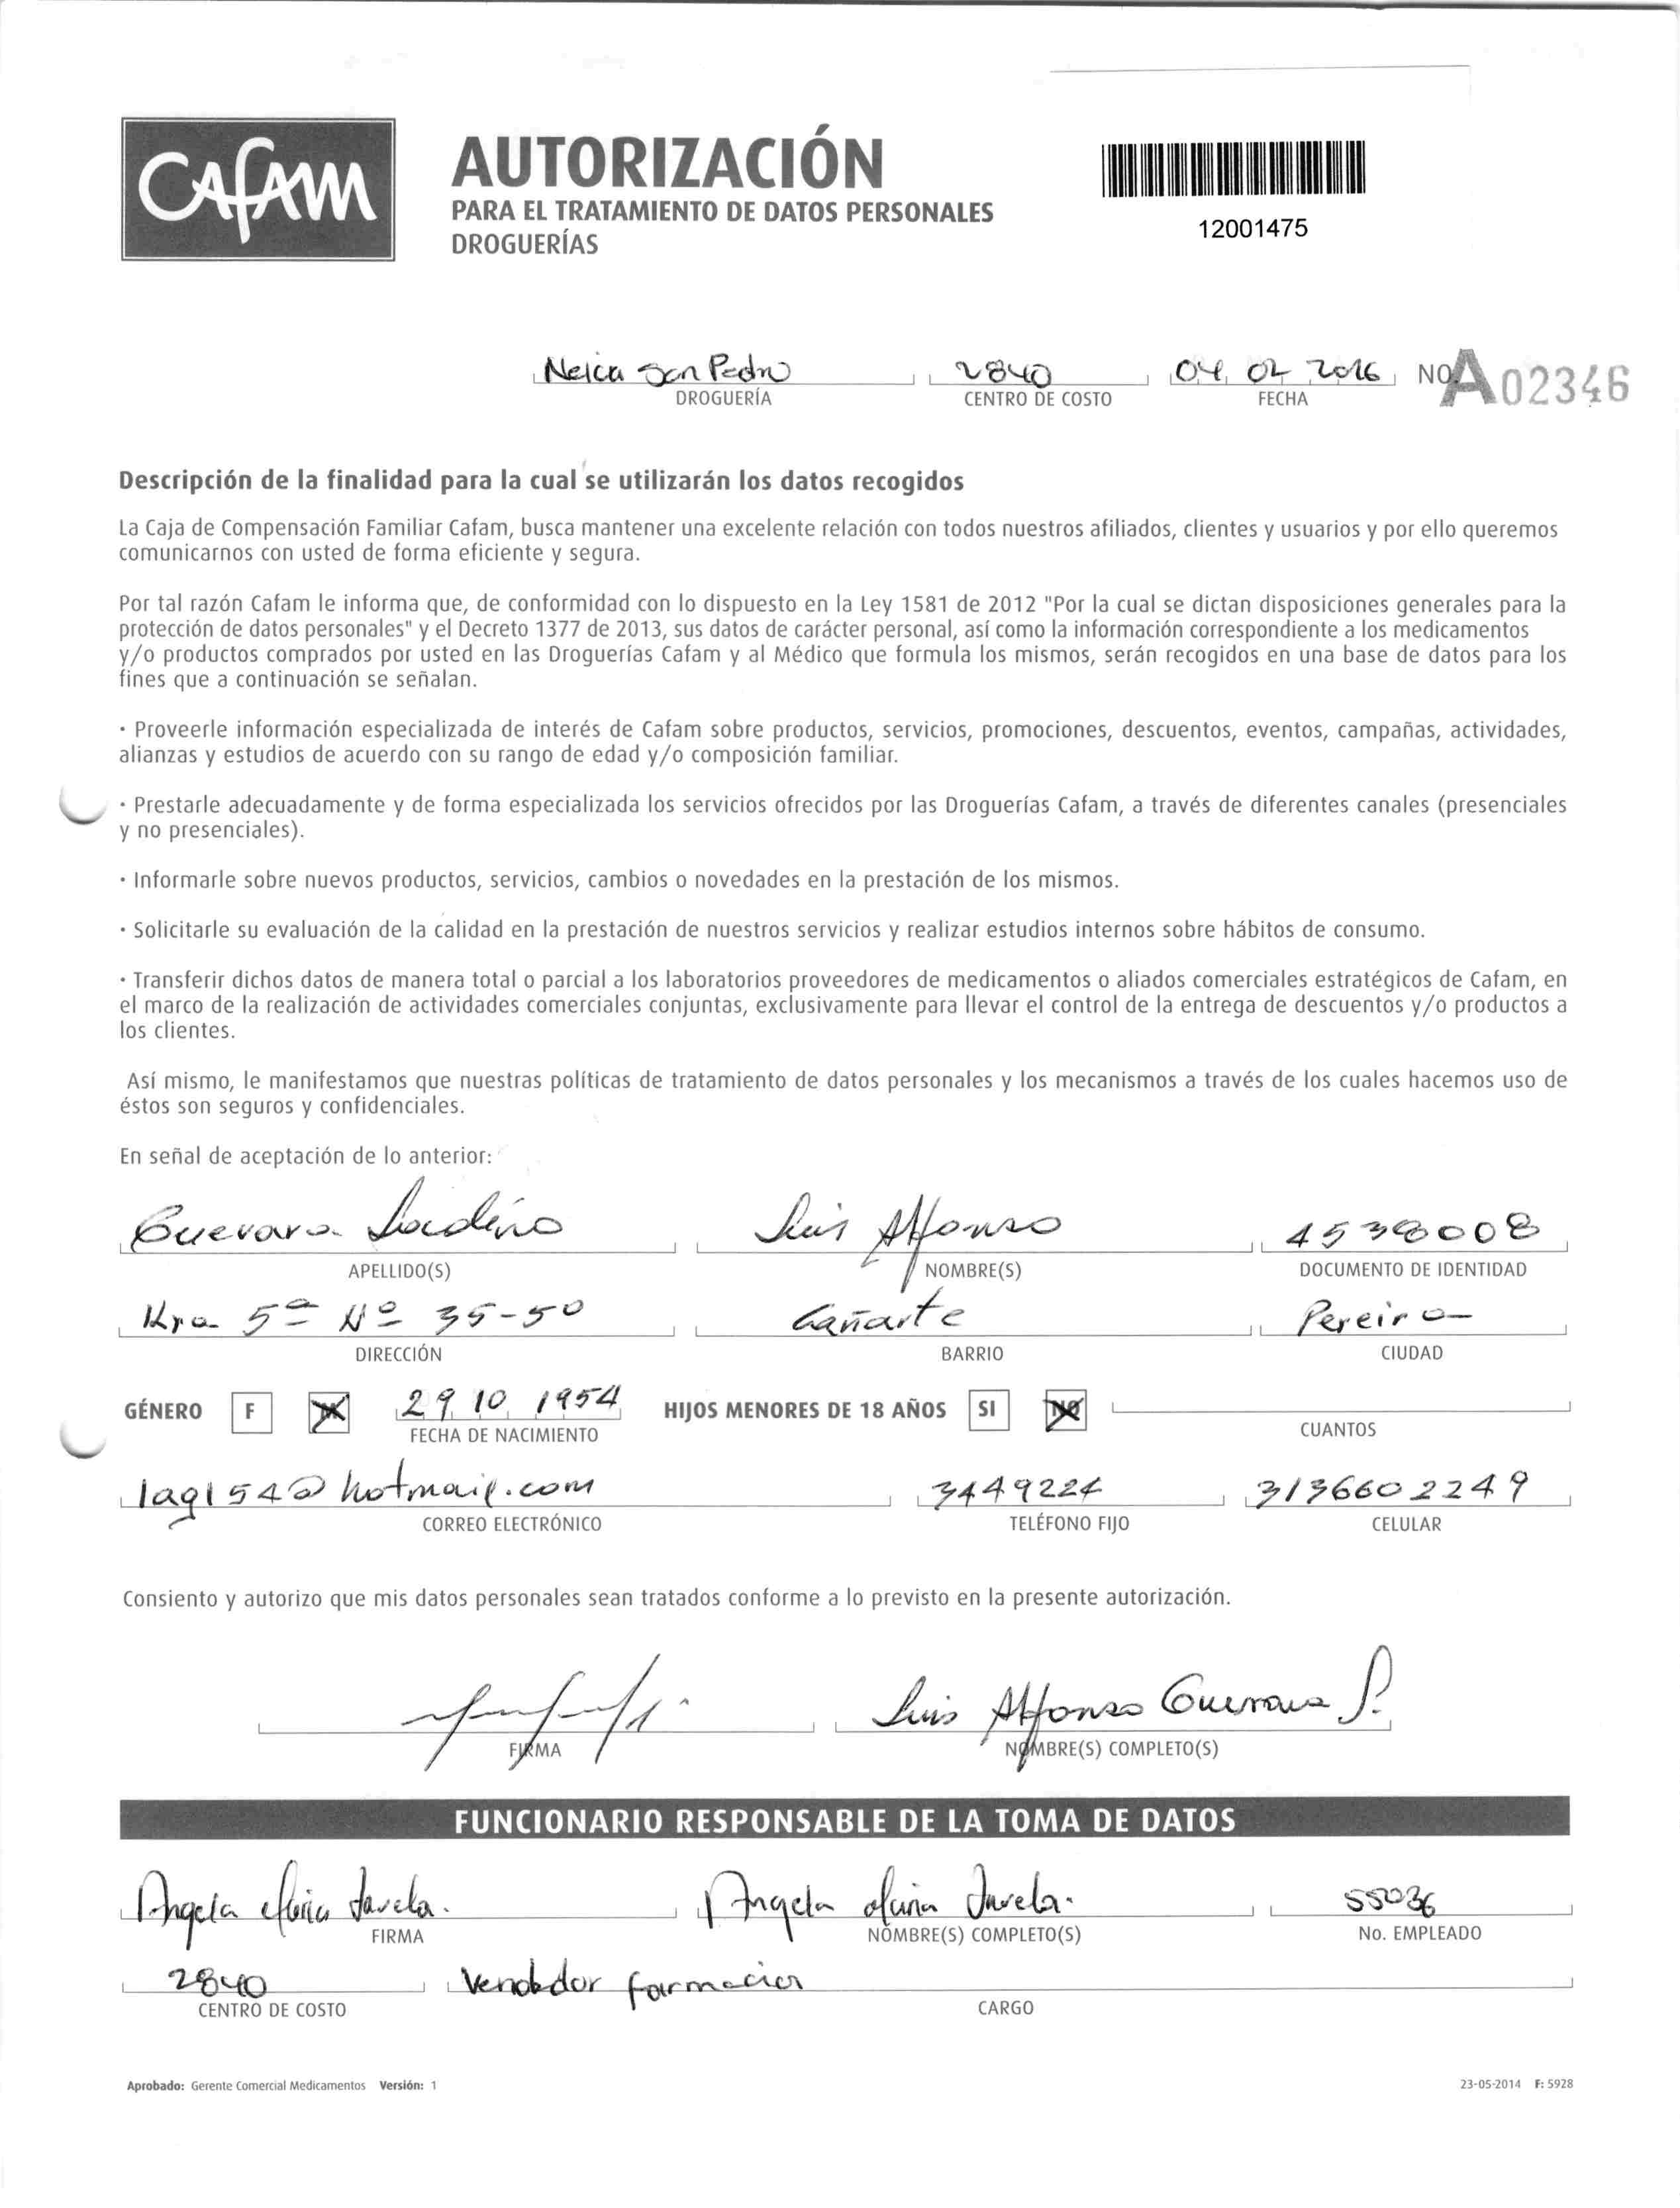 CAFAM
AUTORIZACIÓN
PARA EL TRATAMIENTO DE DATOS PERSONALES
DROGUERÍAS
12001475
Neica San Pedro 2840 04 02 2016 NO. A 02346
DROGUERÍA CENTRO DE COSTO FECHA
Descripción de la finalidad para la cual se utilizarán los datos recogidos
La Caja de Compensación Familiar Cafam, busca mantener una excelente relación con todos nuestros afiliados, clientes y usuarios y por ello queremos
comunicarnos con usted de forma eficiente y segura.
Por tal razón Cafam le informa que, de conformidad con lo dispuesto en la Ley 1581 de 2012 "Por la cual se dictan disposiciones generales para la
protección de datos personales" y el Decreto 1377 de 2013, sus datos de carácter personal, así como la información correspondiente a los medicamentos
y/o productos comprados por usted en las Droguerías Cafam y al Médico que formula los mismos, serán recogidos en una base de datos para los
fines que a continuación se señalan.
· Proveerle información especializada de interés de Cafam sobre productos, servicios, promociones, descuentos, eventos, campañas, actividades,
alianzas y estudios de acuerdo con su rango de edad y/o composición familiar.
· Prestarle adecuadamente y de forma especializada los servicios ofrecidos por las Droguerías Cafam, a través de diferentes canales (presenciales
y no presenciales).
· Informarle sobre nuevos productos, servicios, cambios o novedades en la prestación de los mismos.
· Solicitarle su evaluación de la calidad en la prestación de nuestros servicios y realizar estudios internos sobre hábitos de consumo.
· Transferir dichos datos de manera total o parcial a los laboratorios proveedores de medicamentos o aliados comerciales estratégicos de Cafam, en
el marco de la realización de actividades comerciales conjuntas, exclusivamente para llevar el control de la entrega de descuentos y/o productos a
los clientes.
Así mismo, le manifestamos que nuestras políticas de tratamiento de datos personales y los mecanismos a través de los cuales hacemos uso de
éstos son seguros y confidenciales.
En señal de aceptación de lo anterior:
Guevara Luis Alfonso 4538008
APELLIDO(S) NOMBRE(S) DOCUMENTO DE IDENTIDAD
Kra 5ª Nº 35-50 Cañarte Pereira
DIRECCIÓN BARRIO CIUDAD
GÉNERO F M 29 10 1954 HIJOS MENORES DE 18 AÑOS SI NO
FECHA DE NACIMIENTO CUANTOS
lagl54@hotmail.com 3449224 3136602249
CORREO ELECTRÓNICO TELÉFONO FIJO CELULAR
Consiento y autorizo que mis datos personales sean tratados conforme a lo previsto en la presente autorización.
Luis Alfonso Guevara S.
FIRMA NOMBRE(S) COMPLETO(S)
FUNCIONARIO RESPONSABLE DE LA TOMA DE DATOS
Angela Maria Varela. Angela Maria Varela. 55036
FIRMA NOMBRE(S) COMPLETO(S) No. EMPLEADO
2840 Vendedor farmacia
CENTRO DE COSTO CARGO
Aprobado: Gerente Comercial Medicamentos Versión: 1 23-05-2014 F: 5928